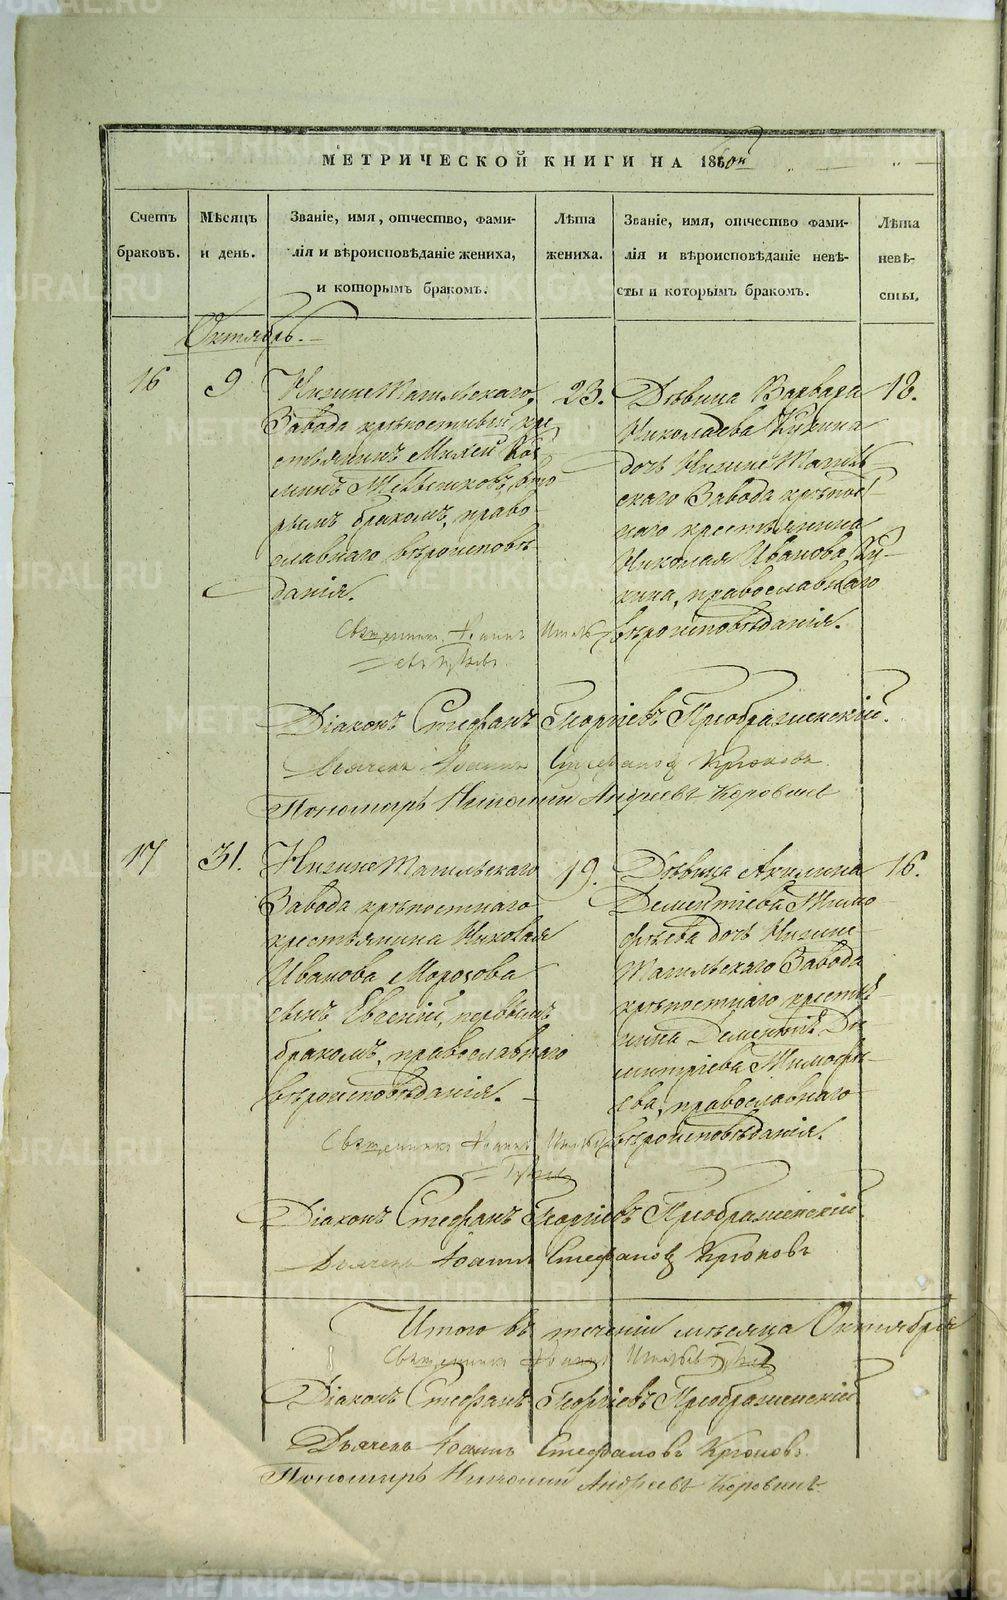 МЕТРИЧЕСКОЙ КНИГИ НА 186
Счетъ браковъ.
Мѣсяцъ и день.
Званіе, имя, отчество, фами-
лія и вѣроисповѣданіе жениха,
и которымъ бракомъ.
Лѣта жениха.
Званіе, имя, отчество фами-
лія и вѣроисповѣданіе невѣ-
сты и которымъ бракомъ.
Лѣта невѣ-
сты.
Октябрь.
16
9
Нижнетагильскаго
Завода крѣпостный кре
стьянинъ Михей Коз
минъ Мѣльниковъ, вто
рымъ бракомъ, право
славнаго вѣроисповѣ
данія.
23.
Дѣвица Варвара
Николаева Кукина
дочь Нижнетагиль
скаго Завода крѣпост
наго крестьянина
Николая Иванова Ку-
кина, православнаго
вѣроисповѣданія.
18.
Священникъ Іоаннъ
Діаконъ Стефанъ Георгіевъ Преображенскій.
Дьячекъ Іоаннъ Стефановъ Крюковъ
Пономарь Николай Андреевъ Коровинъ
17
31.
Нижнетагильскаго
Завода крѣпостнаго
крестьянина Николая
Иванова Морозова
сынъ Евгеній, первымъ
бракомъ, православнаго
вѣроисповѣданія.
19.
Дѣвица Акилина
Дементіева Тимо
фѣева дочь Нижне
Тагильскаго Завода
крѣпостнаго крестья
нина Дементія Ди
митріева Тимофѣ
ева, православнаго
вѣроисповѣданія.
16.
Священникъ Іоаннъ
Діаконъ Стефанъ Георгіевъ Преображенскій.
Дьячекъ Іоаннъ Стефановъ Крюковъ
Итого въ теченіи мѣсяца Октября
Священникъ Іоаннъ
Діаконъ Стефанъ Георгіевъ Преображенскій
Дьячекъ Іоаннъ Стефановъ Крюковъ
Пономарь Николай Андреевъ Коровинъ
METRIKI.GASO-URAL.RU